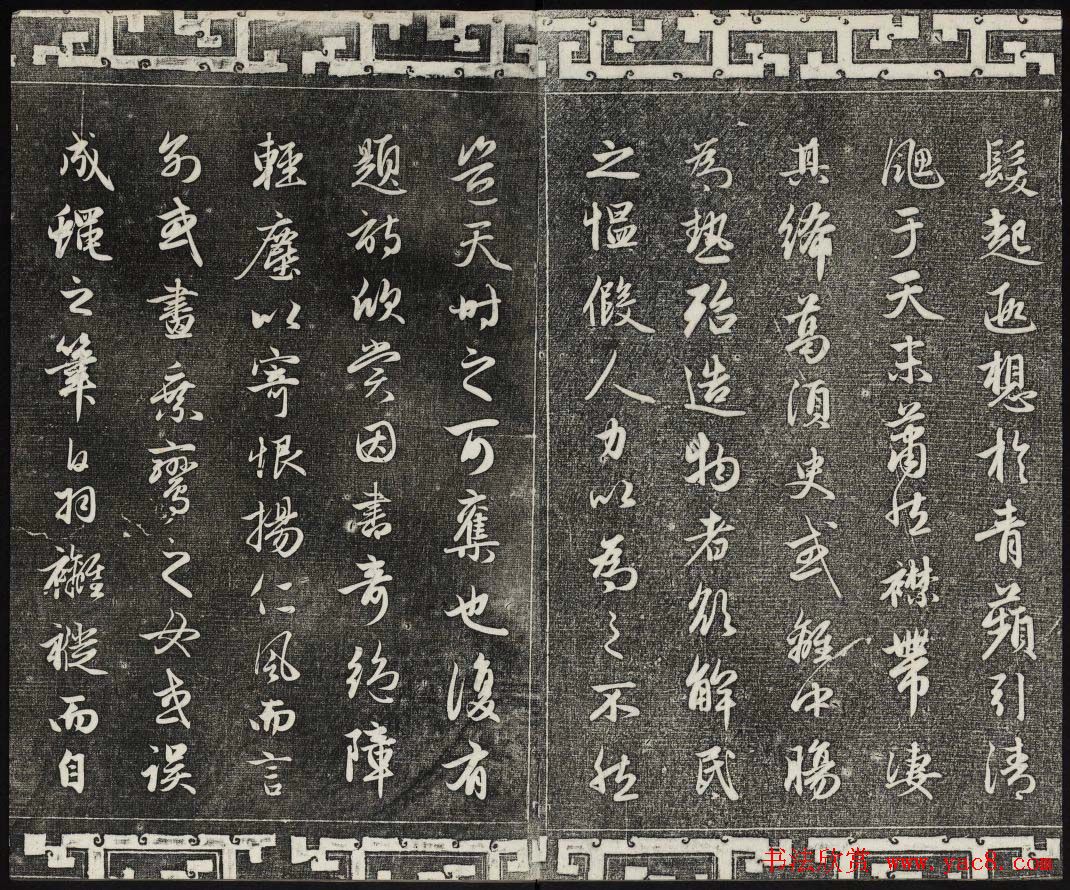 髮起遐想於青蘋引清
颸于天末蕭然襟帶凄
其絺葛須臾或中
為熱殆造物者欲解民
之愠假人力以為之不然
豈天時之可奪也復有
題詩欣賞因書奇絶障
輕塵以寄恨揚仁風而言
別或畫乘鸞之女或誤
成蠅之筆白羽褷而自
书法欣赏 www.yac8.com